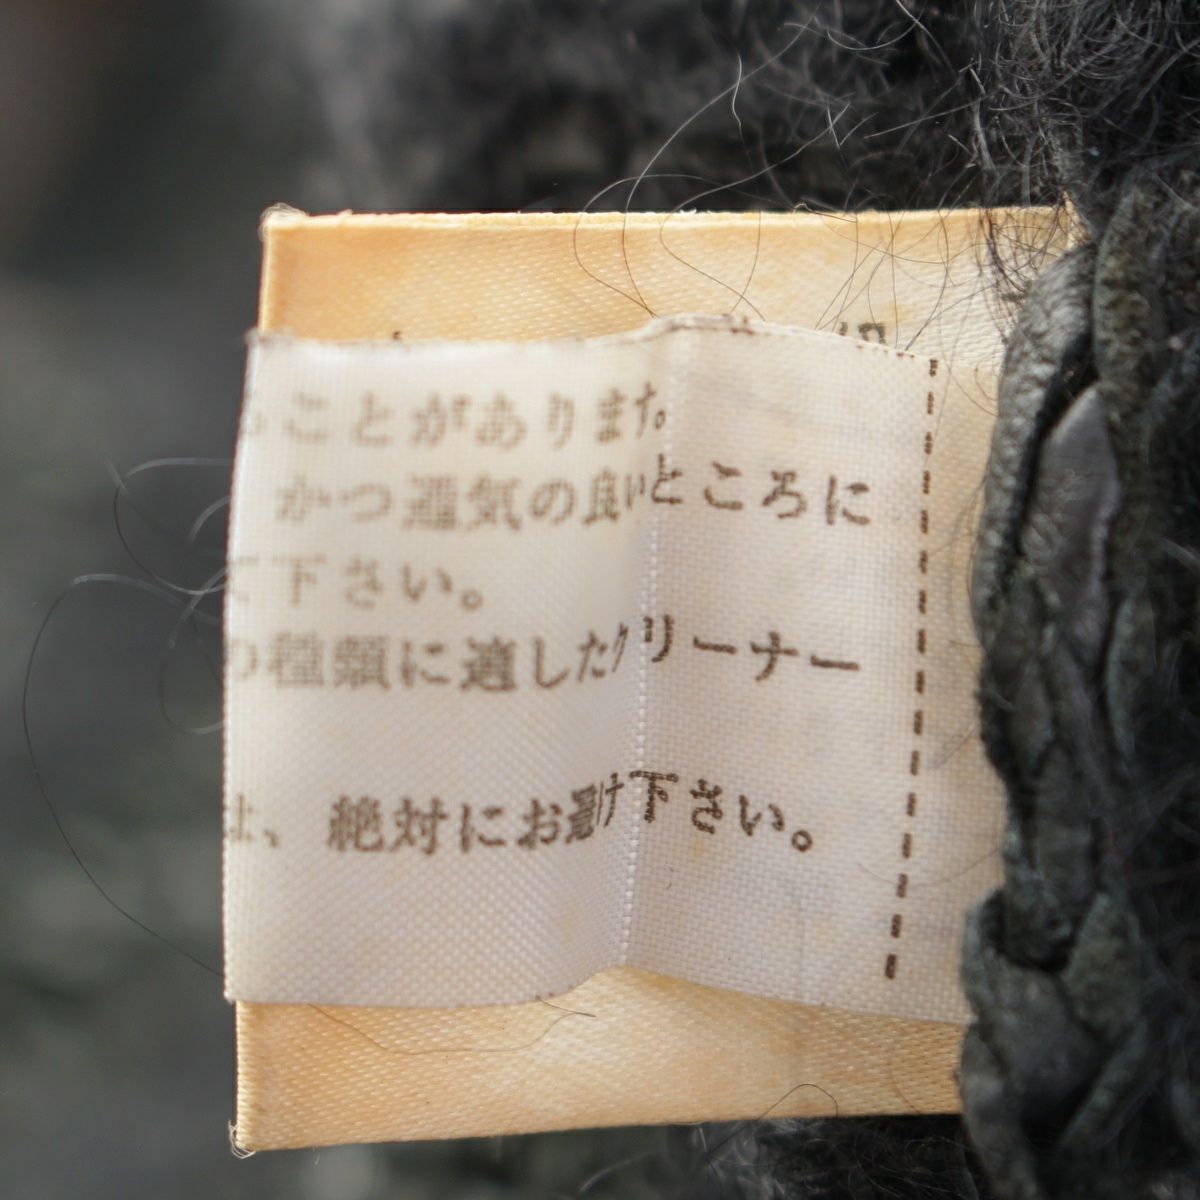 ことがありま
かつ通気の良いところに
て下さい。
の種類に適したクリーナー
は、絶対にお避け下さい。